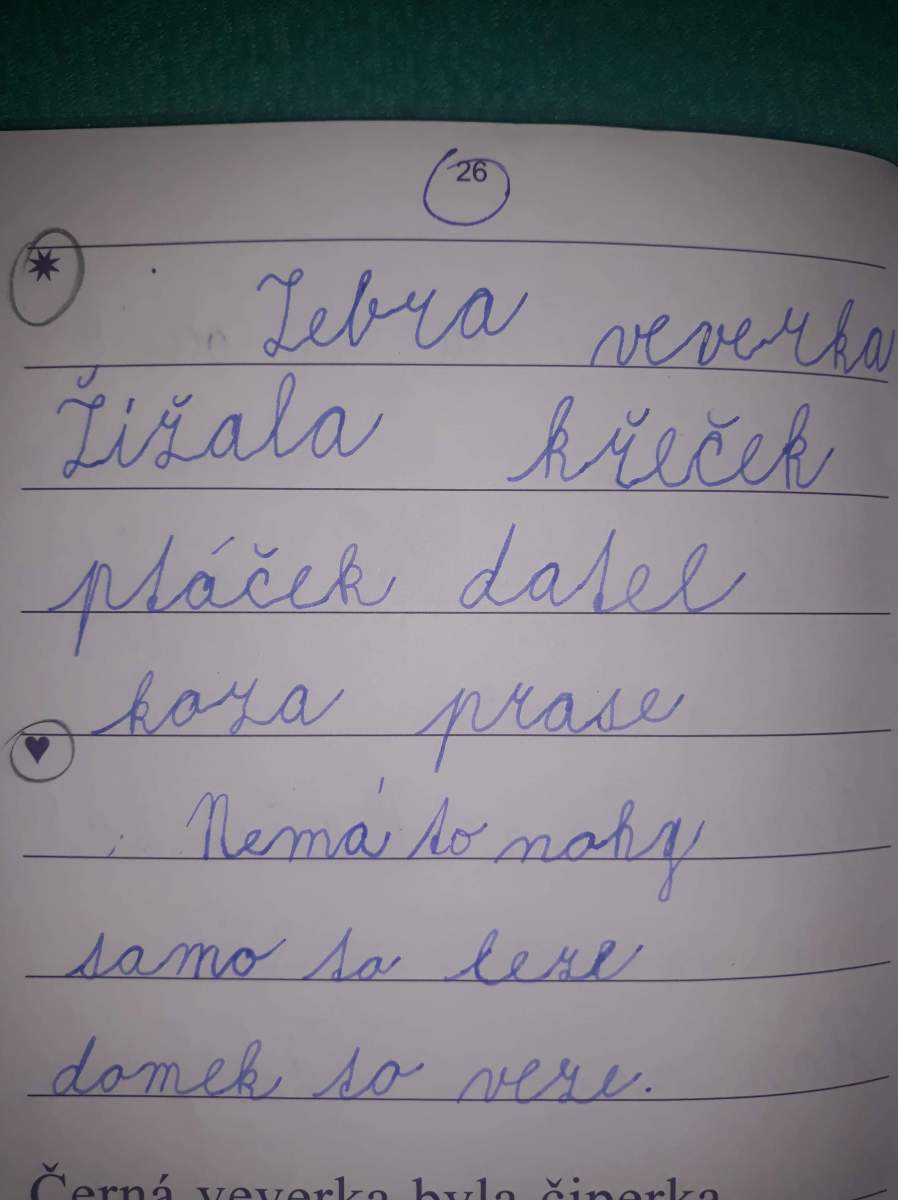 26
Zebra veverka
Žižala křeček
ptáček datel
koza prase
Nemá to nohy
samo to leze
domek to veze.
Černá veverka byla čiperka